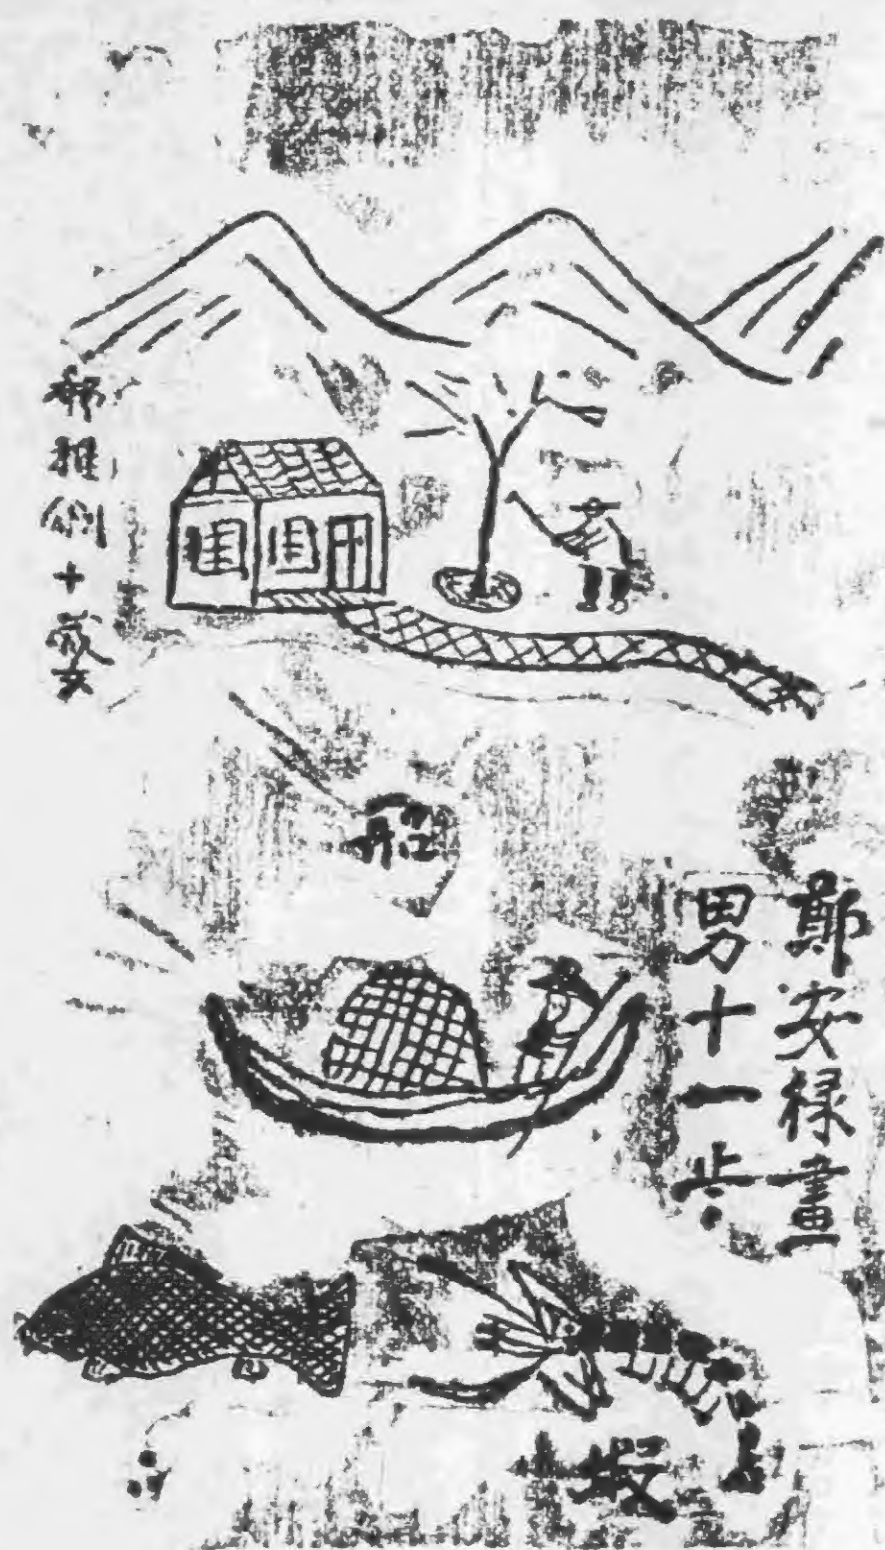 十歲女
船
鄭安禄畫
男十一
蝦